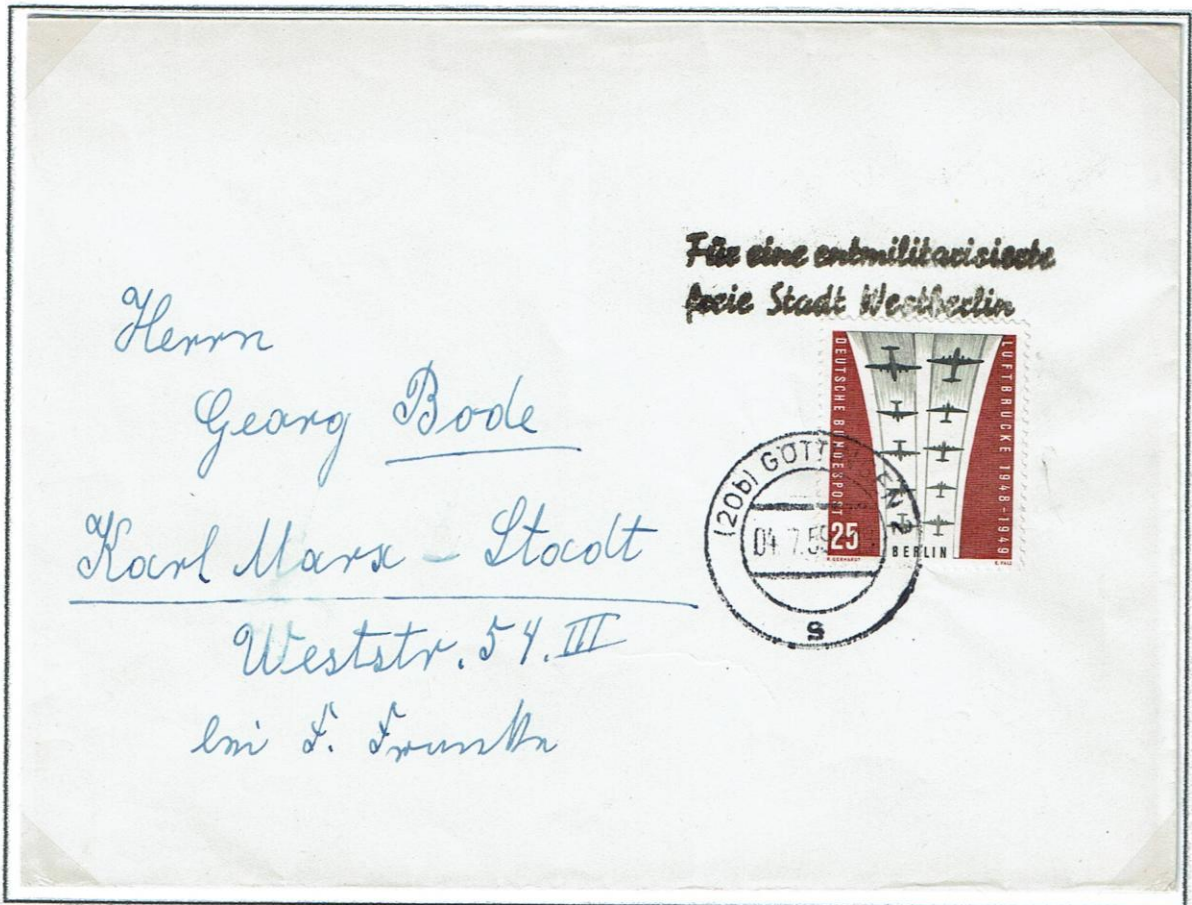 Für eine entmilitarisierte
freie Stadt Westberlin
Herrn
Georg Bode
Karl Marx - Stadt
Weststr. 54. III
bei F.
DEUTSCHE BUNDESPOST
LUFTBRÜCKE 1948-1949
25
BERLIN
(20b) GÖTTINGEN 2
04. 7. 59
s